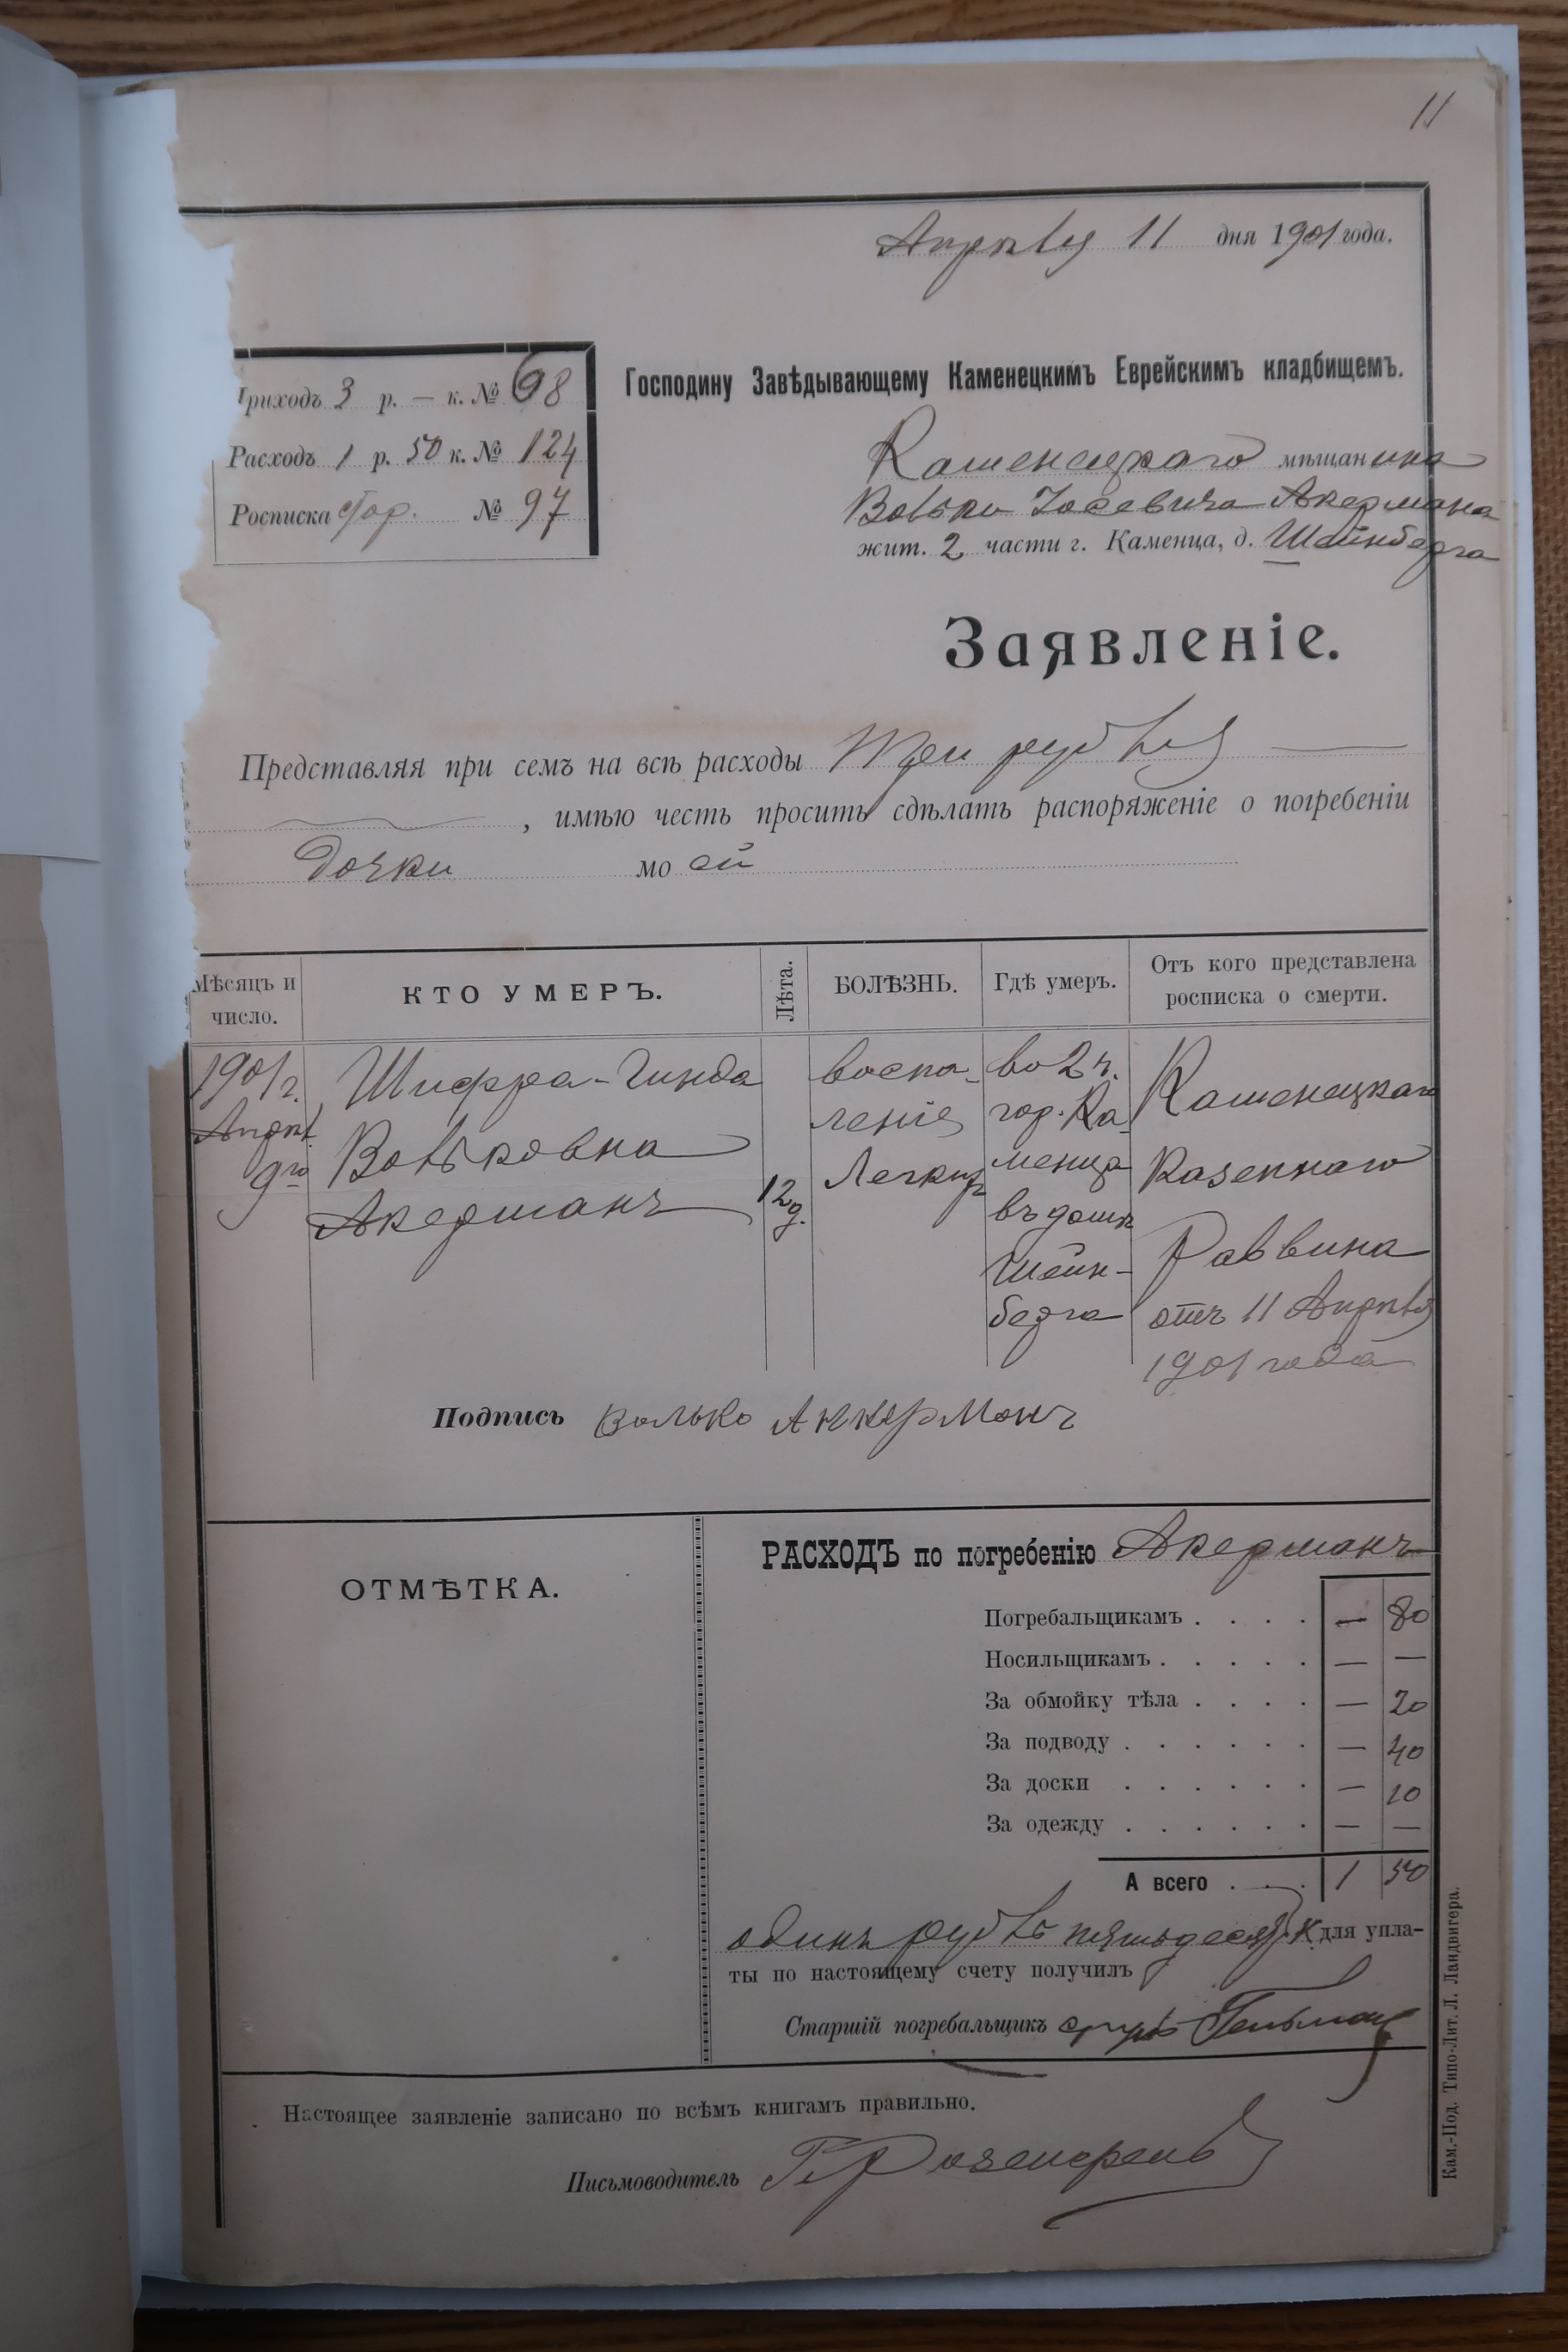 11
Апрѣля 11 дня 1901 года.
Приходъ 3 р. — к. № 68
Расходъ 1 р. 50 к. № 124
Росписка № 97
Господину Завѣдывающему Каменецкимъ Еврейскимъ кладбищемъ.
Каменецкаго мѣщанина
Вольки Іосевича Акермана
жит. 2 части г. Каменца, д. Шейнберга
Заявленіе.
Представляя при семъ на всѣ расходы три рубля —
, имѣю честь просить сдѣлать распоряженіе о погребеніи
дочки моей
Мѣсяцъ и число.
КТО УМЕРЪ.
Лѣта.
БОЛѢЗНЬ.
Гдѣ умеръ.
Отъ кого представлена росписка о смерти.
1901 г.
Апрѣл.
9го
Шифра-Гинда
Вольковна
Акерманъ
12 д.
воспа-
леніе
Легкихъ
во 2 ч.
гор. Ка-
менца
въ домѣ
Шейн-
берга
Каменецкаго
Казеннаго
Раввина
отъ 11 Апрѣля
1901 года
Подпись Волько Аккермонъ
ОТМѢТКА.
РАСХОДЪ по погребенію Акерманъ
Погребальщикамъ . . . . — 80
Носильщикамъ . . . . . — —
За обмойку тѣла . . . . — 20
За подводу . . . . . . — 40
За доски . . . . . . — 10
За одежду . . . . . . — —
А всего . . . 1 50
одинъ рубль пятьдесят. к. для упла-
ты по настоящему счету получилъ
Старшій погребальщикъ
Настоящее заявленіе записано по всѣмъ книгамъ правильно.
Письмоводитель
Кам.-Под. Типо-Лит. Л. Ландвигера.